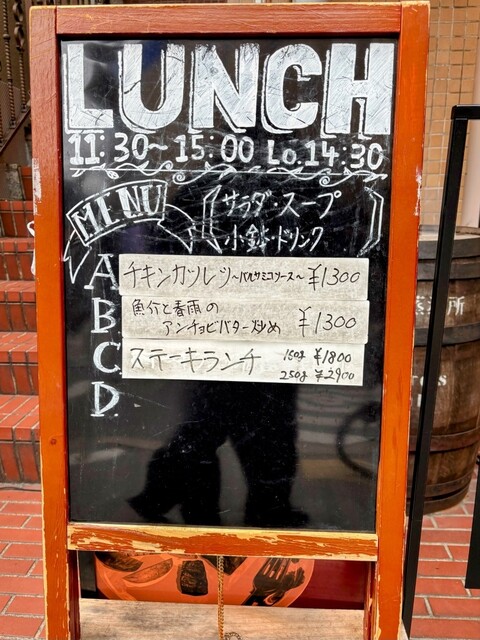 LUNCH
11:30~15:00 Lo.14:30
MENU
サラダ・スープ
小鉢・ドリンク
A チキンカツレツ~バルサミコソース~ ¥1300
B 魚介と春雨の
アンチョビバター炒め ¥1300
C ステーキランチ 150g ¥1800
250g ¥2900
D.